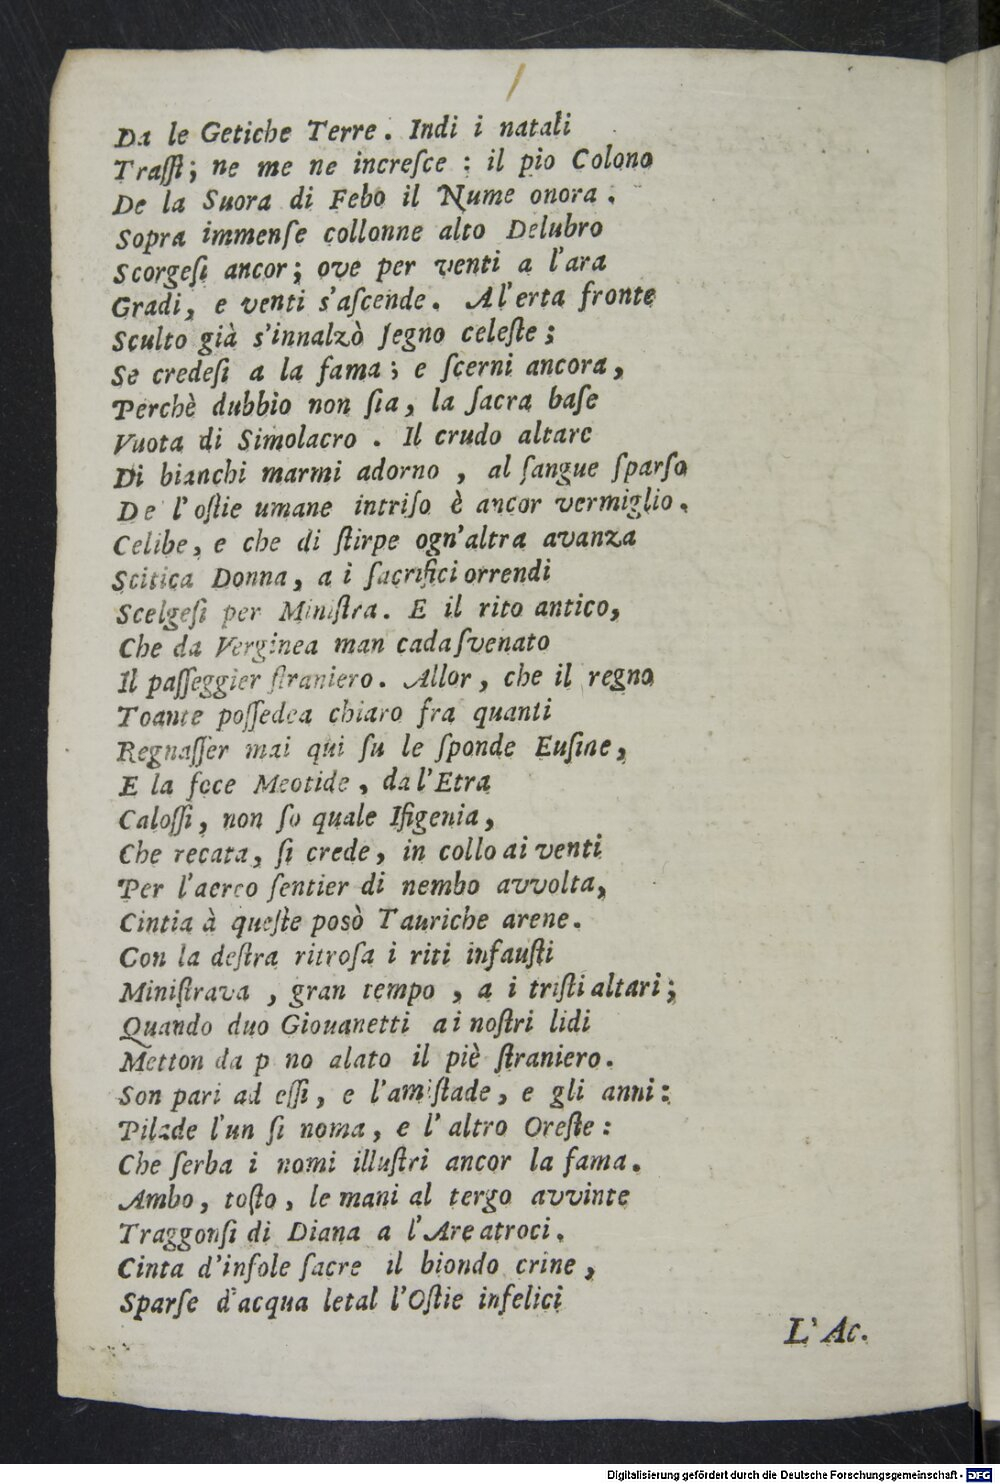 Da le Getiche Terre. Indi i natali
Traſſi; ne me ne increſce: il pio Colono
De la Suora di Febo il Nume onora.
Sopra immenſe collonne alto Delubro
Scorgeſi ancor; ove per venti a l'ara
Gradi, e venti s'aſcende. Al'erta fronte
Sculto già s'innalzò ſegno celeſte;
Se credeſi a la fama; e ſcerni ancora,
Perchè dubbio non ſia, la ſacra baſe
Vuota di Simolacro. Il crudo altare
Di bianchi marmi adorno, al ſangue ſparſo
De l'oſtie umane intriſo è ancor vermiglio.
Celibe, e che di ſtirpe ogn'altra avanza
Scitica Donna, a i ſacrifici orrendi
Scelgeſi per Miniſtra. E il rito antico,
Che da Verginea man cada ſvenato
Il paſſeggier ſtraniero. Allor, che il regno
Toante poſſedea chiaro fra quanti
Regnaſſer mai qui ſu le ſponde Euſine,
E la foce Meotide, da l'Etra
Caloſſi, non ſo quale Ifigenia,
Che recata, ſi crede, in collo ai venti
Per l'aereo ſentier di nembo avvolta,
Cintia à queſte posò Tauriche arene.
Con la deſtra ritroſa i riti infauſti
Miniſtrava, gran tempo, a i triſti altari;
Quando duo Giouanetti ai noſtri lidi
Metton da p no alato il piè ſtraniero.
Son pari ad eſſi, e l'amiſtade, e gli anni:
Pilade l'un ſi noma, e l'altro Oreſte:
Che ſerba i nomi illuſtri ancor la fama.
Ambo, toſto, le mani al tergo avvinte
Traggonſi di Diana a l'Are atroci.
Cinta d'inſole ſacre il biondo crine,
Sparſe d'acqua letal l'Oſtie infelici
L'Ac.
Digitalisierung gefördert durch die Deutsche Forschungsgemeinschaft - DFG